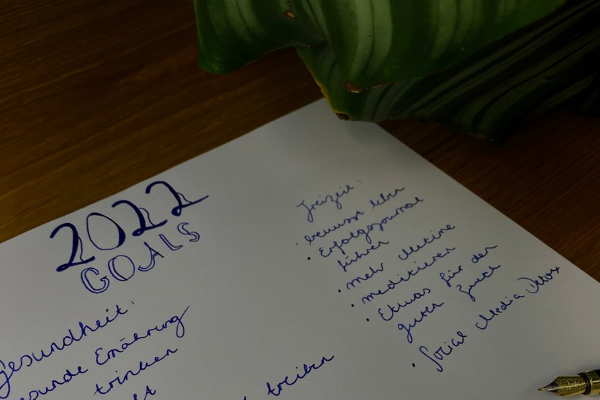 2022
GOALS
Gesundheit:
gesunde Ernährung
trinken
treiben
Freizeit:
• bewusst leben
• Erfolgsjournal
führen
• mehr
• meditieren
• Etwas für den
guten Zweck
• Social Media Detox